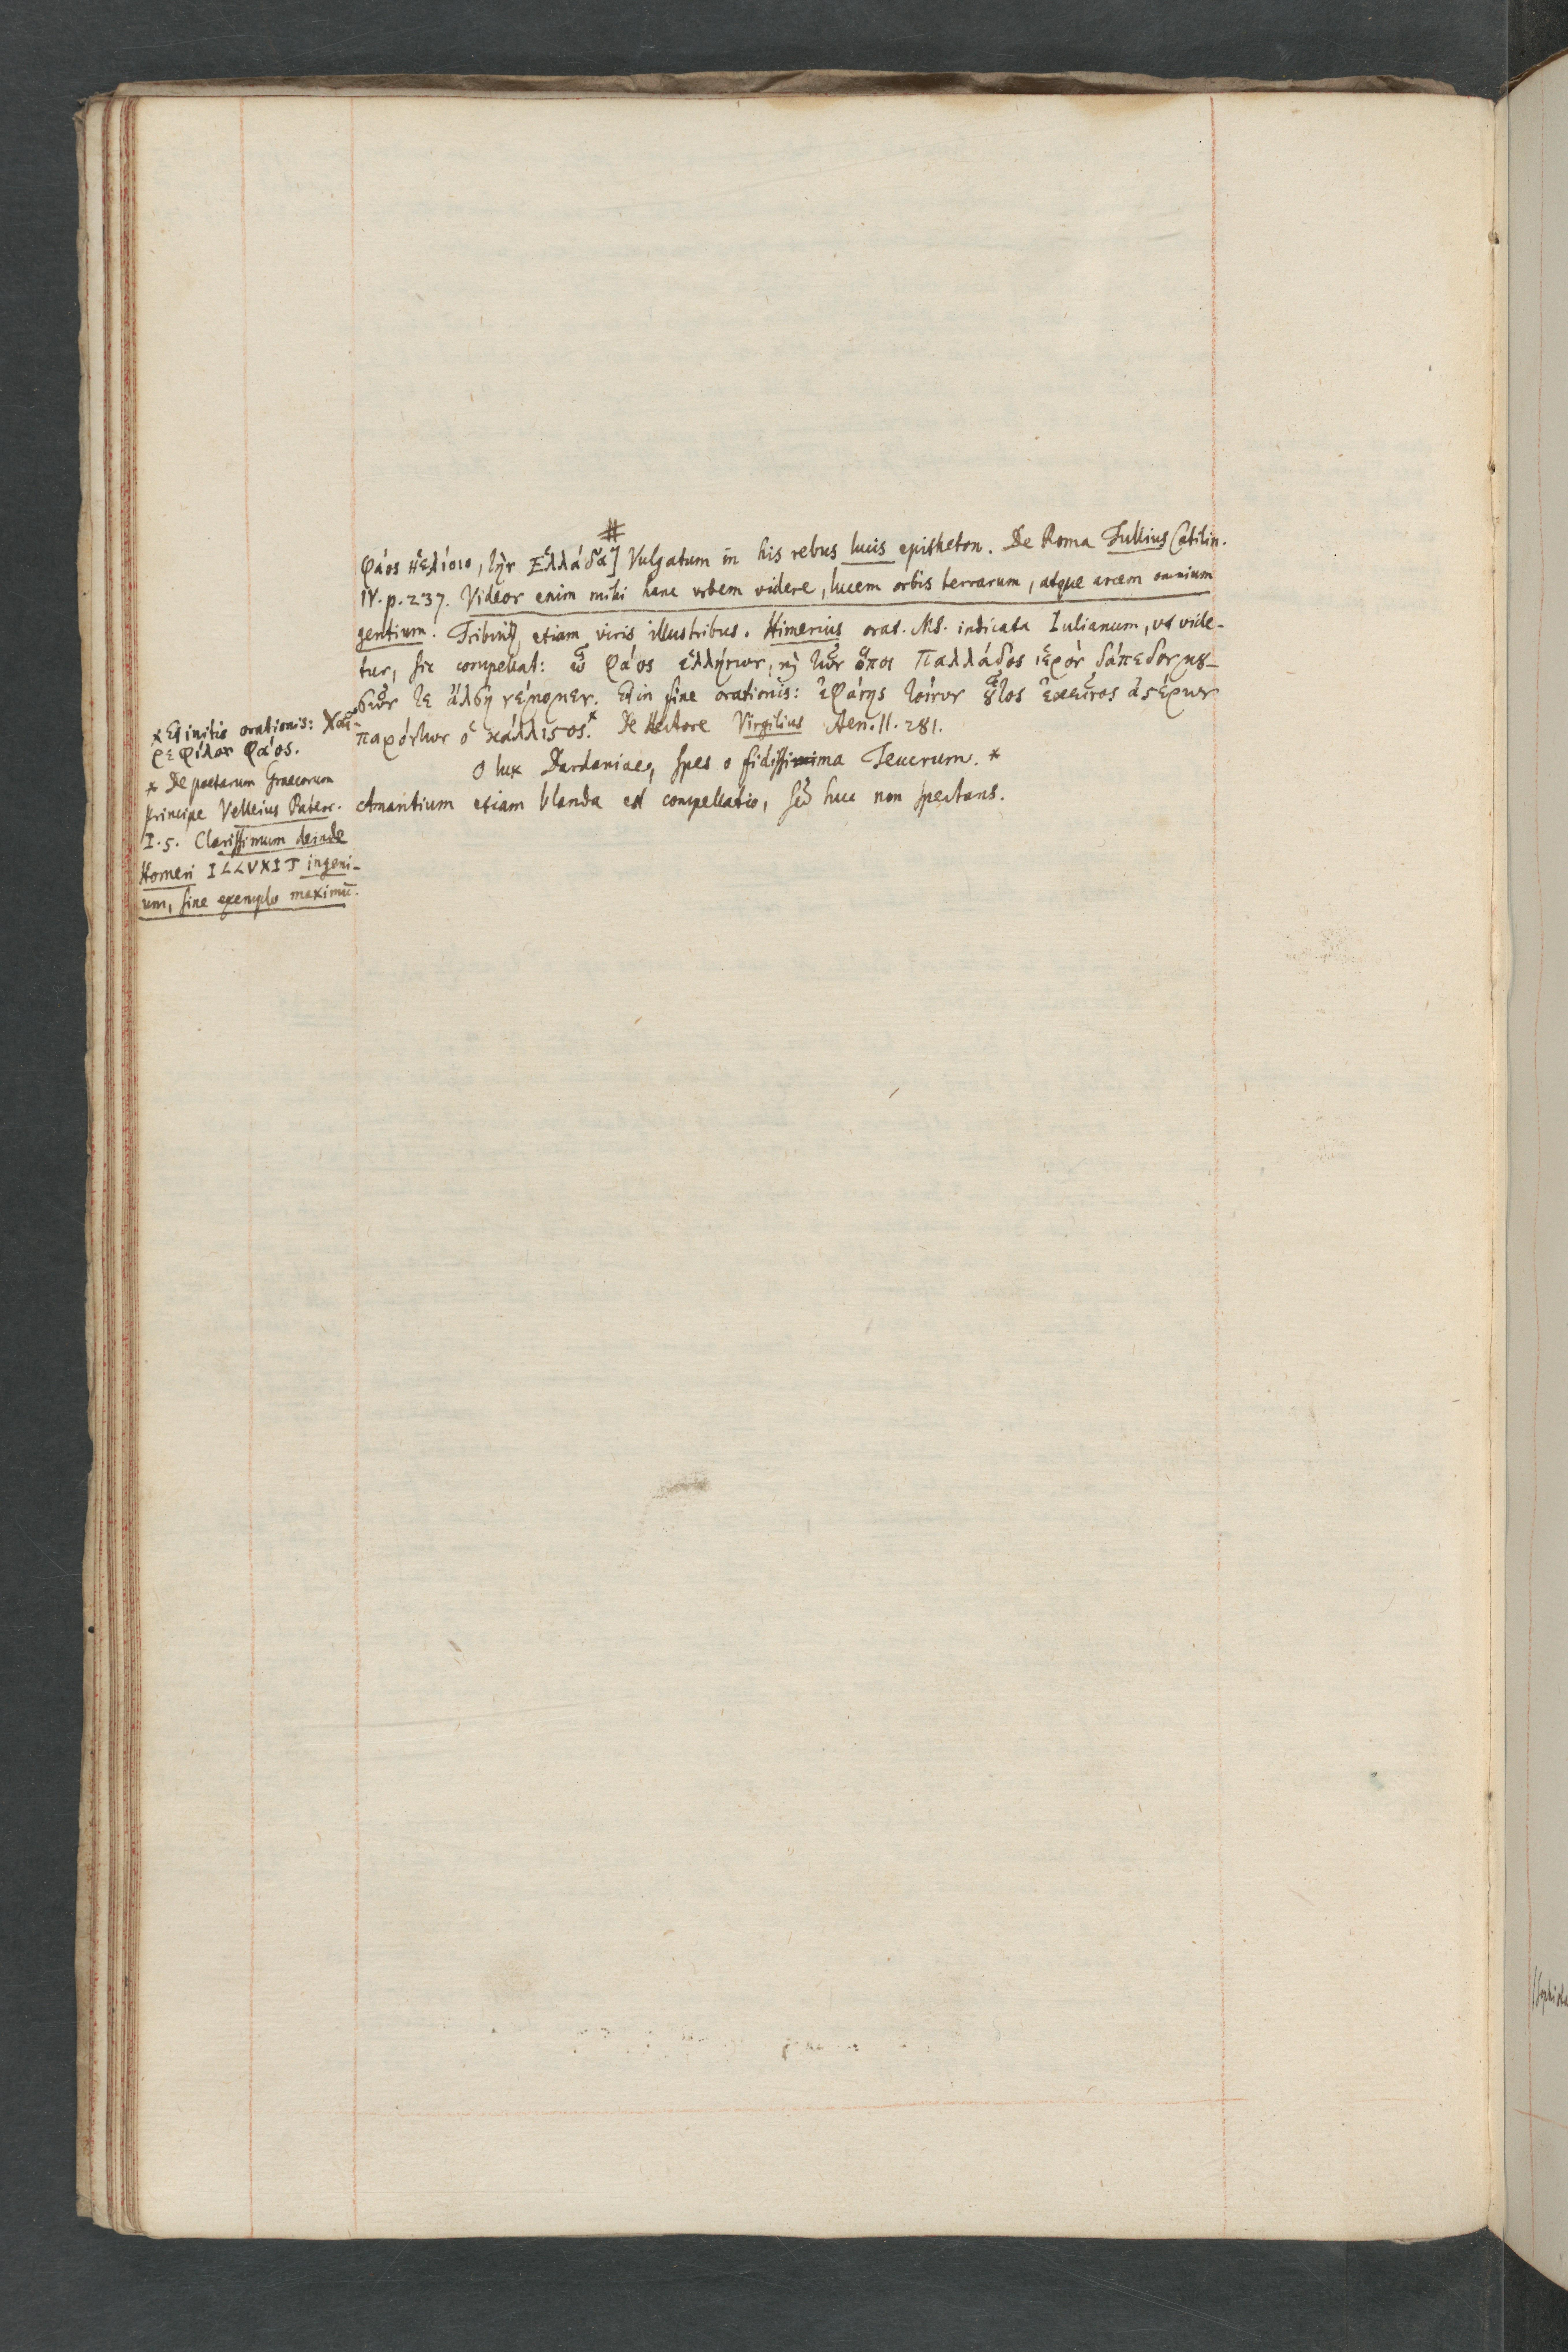 #
φάος ἠελίοιο, τὴν Ἑλλάδα] Vulgatum in his rebus lucis epitheton. De Roma Tullius Catilin.
IV. p. 237. Videor enim mihi hanc urbem videre, lucem orbis terrarum, atque arcem omnium
gentium. etiam viris illustribus. Himerius orat. MS. indicata Iulianum, ut vide-
tur, sic compellat: ὦ φάος ἑλλήνων, καὶ τῶν ὅσοι Παλλάδος ἱερὸν δάπεδον
τε ἄλση νέμομεν. Et in fine orationis: ἐφάνης τοίνυν οὗτος ἐκεῖνος ἀστέρων
παρόντων ὁ κάλλιστος.* De Hectore Virgilius Aen. II. 281.
O lux Dardaniae, spes o fidissima Teucrum. *
Amantium etiam blanda est compellatio, sed huc non spectans.
* Et initio orationis: Χαῖ-
ρε φίλον φάος.
* De poetarum Graecorum
principe Velleius Paterc.
I. 5. Clarissimum deinde
Homeri ILLVXIT ingeni-
um, sine exemplo maximū.